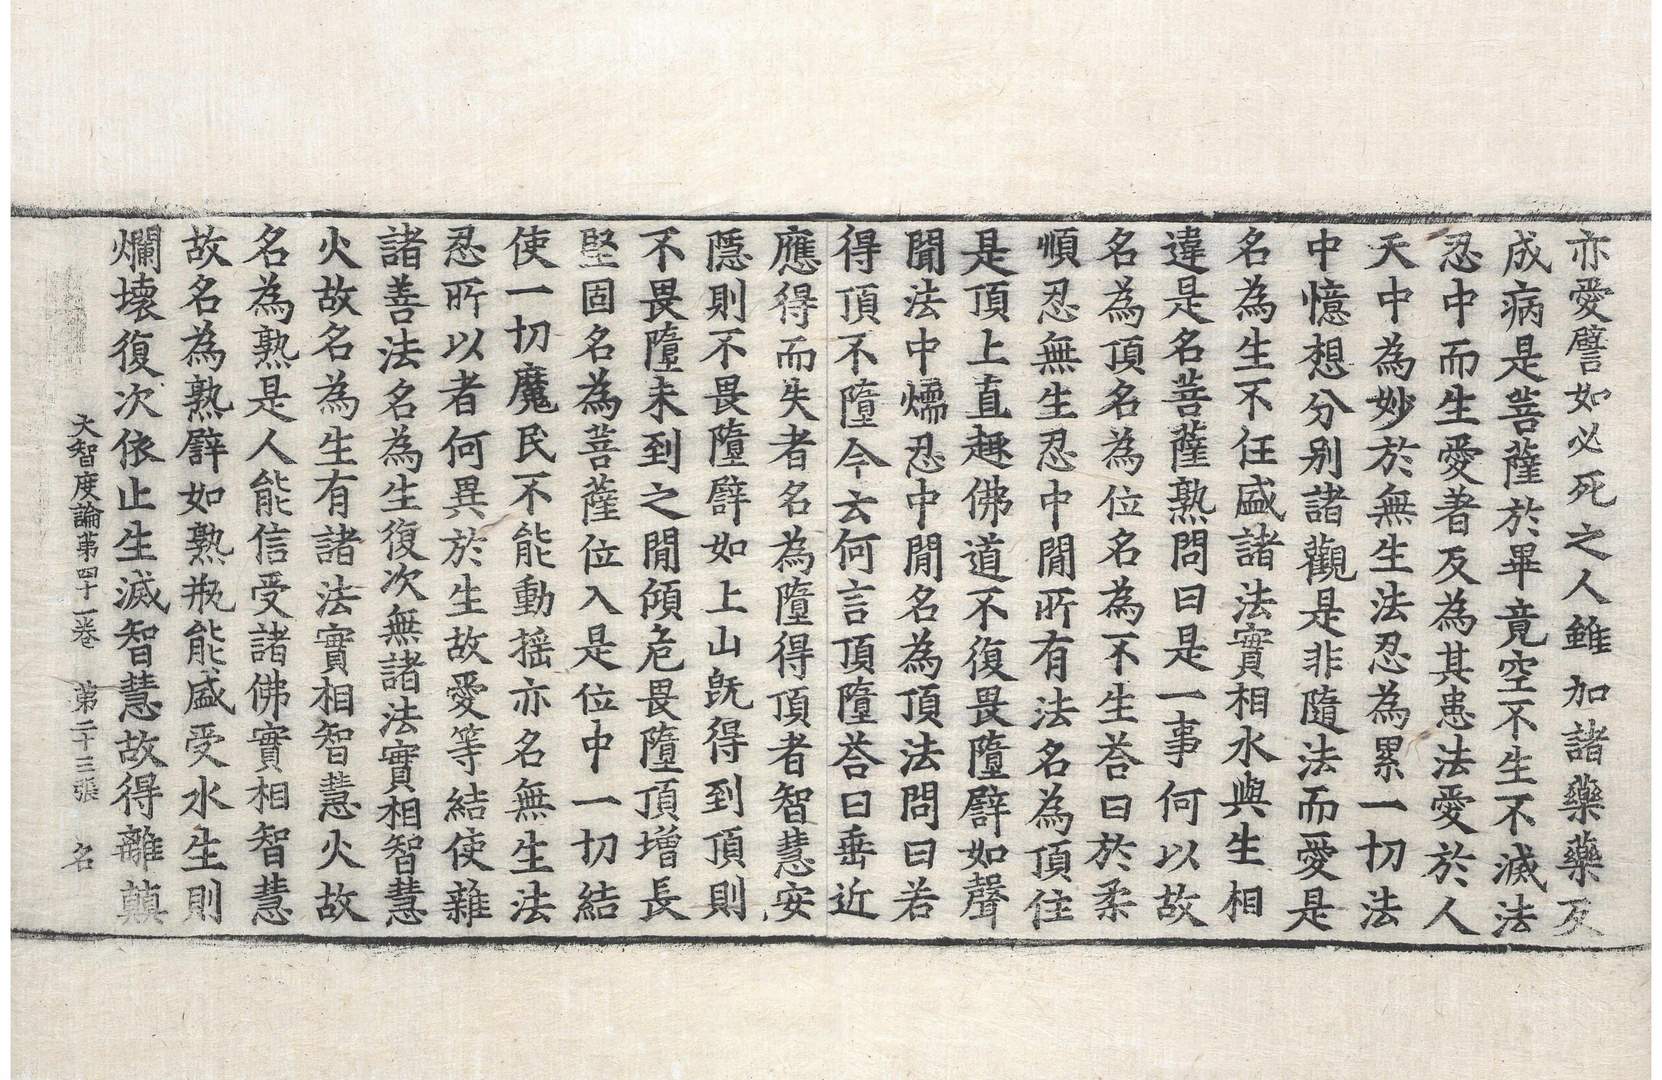 亦愛譬如必死之人雖加諸藥藥反
成病是菩薩於畢竟空不生不滅法
忍中而生愛著反為其患法愛於人
天中為妙於無生法忍為累一切法
中憶想分別諸觀是非隨法而愛是
名為生不任盛諸法實相水與生相
違是名菩薩熟問曰是一事何以故
名為頂名為位名為不生荅曰於柔
順忍無生忍中閒所有法名為頂住
是頂上直趣佛道不復畏墮譬如聲
聞法中煗忍中閒名為頂法問曰若
得頂不墮今云何言頂墮荅曰垂近
應得而失者名為墮得頂者智慧安
隱則不畏墮譬如上山旣得到頂則
不畏墮未到之閒傾危畏墮頂增長
堅固名為菩薩位入是位中一切結
使一切魔民不能動搖亦名無生法
忍所以者何異於生故愛等結使雜
諸善法名為生復次無諸法實相智慧
火故名為生有諸法實相智慧火故
名為熟是人能信受諸佛實相智慧
故名為熟譬如熟瓶能盛受水生則
爛壞復次依止生滅智慧故得離顛
大智度論第四十一卷　第二十三張　名